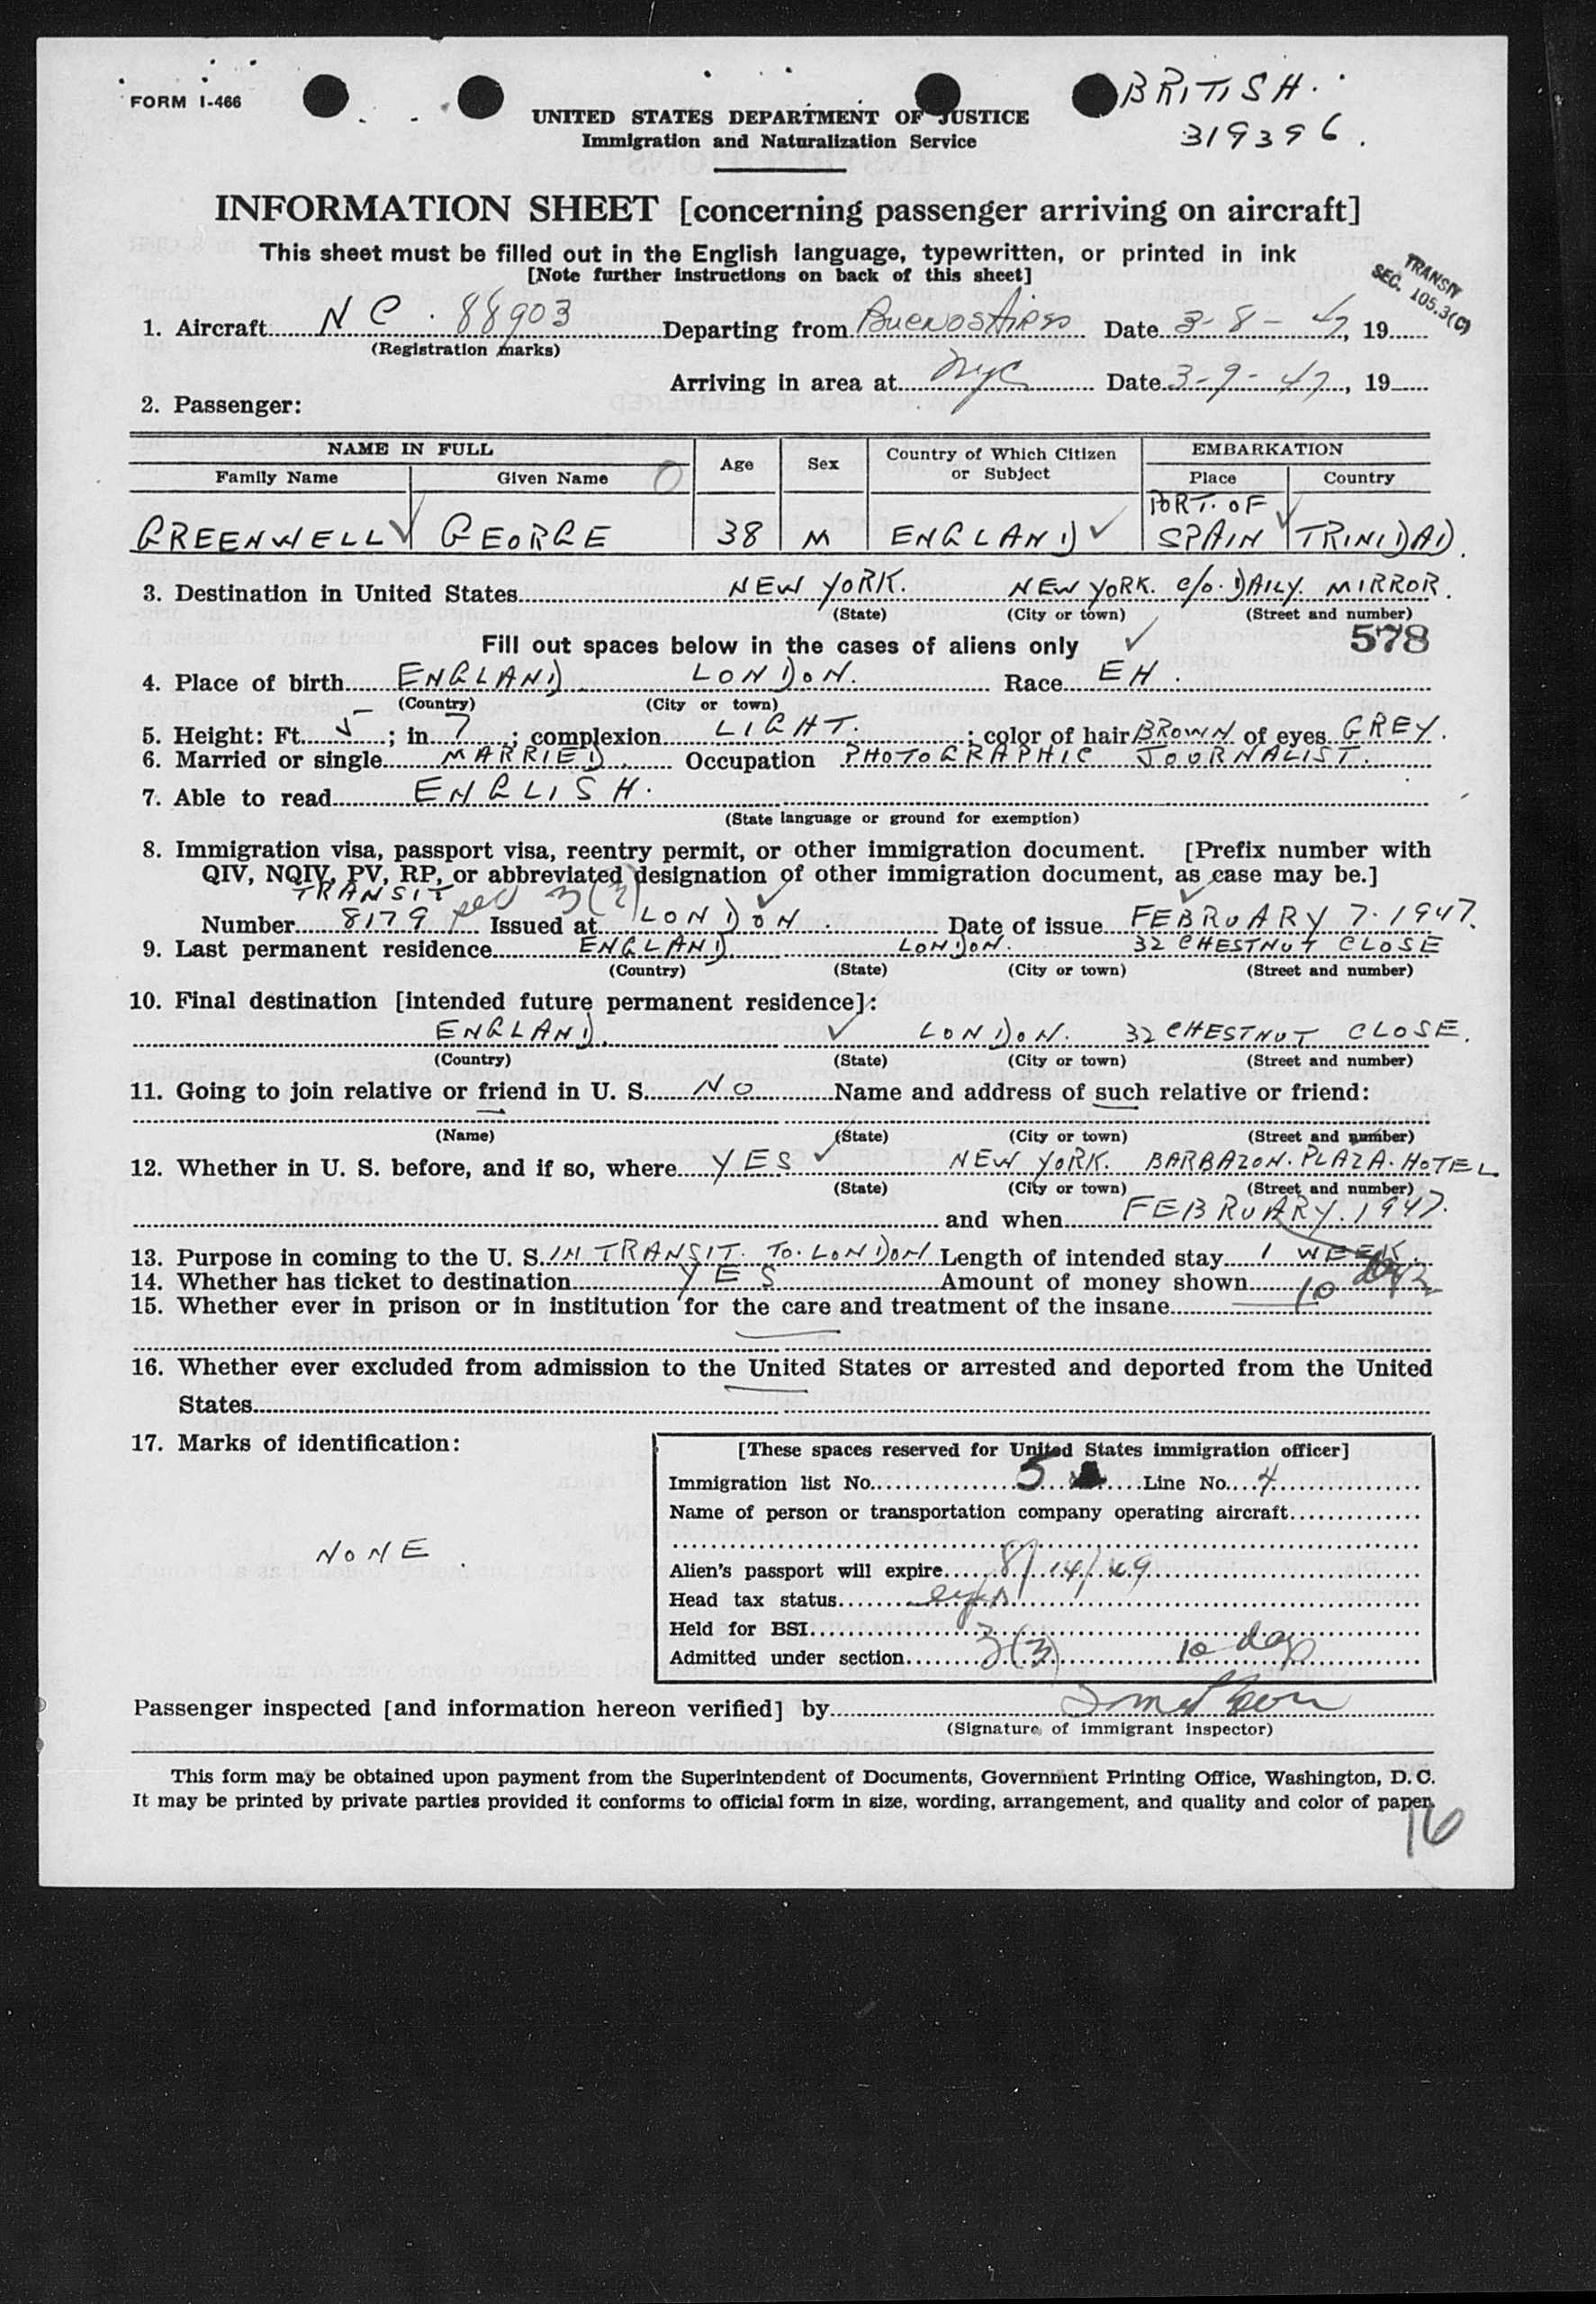 FORM I-466
BRITISH.
319396.
UNITED STATES DEPARTMENT OF JUSTICE
Immigration and Naturalization Service
INFORMATION SHEET [concerning passenger arriving on aircraft]
This sheet must be filled out in the English language, typewritten, or printed in ink
[Note further instructions on back of this sheet]
TRANSIT
SEC. 105.3(C)
1. Aircraft NC. 88903 Departing from Buenos Aires Date 3-8-47, 19
(Registration marks)
Arriving in area at NYC Date 3-9-47, 19
2. Passenger:
NAME IN FULL Age Sex Country of Which Citizen or Subject EMBARKATION
Family Name Given Name Place Country
GREENWELL GEORGE 38 M ENGLAND PORT. OF SPAIN TRINIDAD.
3. Destination in United States NEW YORK. NEW YORK. c/o. DAILY. MIRROR.
(State) (City or town) (Street and number)
Fill out spaces below in the cases of aliens only 578
4. Place of birth ENGLAND LONDON. Race EH.
(Country) (City or town)
5. Height: Ft. 5; in. 7; complexion LIGHT.; color of hair BROWN of eyes GREY.
6. Married or single MARRIED. Occupation PHOTOGRAPHIC JOURNALIST.
7. Able to read ENGLISH.
(State language or ground for exemption)
8. Immigration visa, passport visa, reentry permit, or other immigration document. [Prefix number with
QIV, NQIV, PV, RP, or abbreviated designation of other immigration document, as case may be.]
TRANSIT
Number 8179 sec 3(3) Issued at LONDON. Date of issue FEBRUARY 7. 1947.
9. Last permanent residence ENGLAND LONDON. 32 CHESTNUT CLOSE
(Country) (State) (City or town) (Street and number)
10. Final destination [intended future permanent residence]:
ENGLAND. LONDON. 32 CHESTNUT CLOSE.
(Country) (State) (City or town) (Street and number)
11. Going to join relative or friend in U. S. NO Name and address of such relative or friend:
(Name) (State) (City or town) (Street and number)
12. Whether in U. S. before, and if so, where YES NEW YORK. BARBAZON. PLAZA. HOTEL
(State) (City or town) (Street and number)
and when FEBRUARY. 1947.
13. Purpose in coming to the U. S. IN TRANSIT. TO. LONDON Length of intended stay 1 WEEK.
14. Whether has ticket to destination YES Amount of money shown 10
15. Whether ever in prison or in institution for the care and treatment of the insane
16. Whether ever excluded from admission to the United States or arrested and deported from the United
States
17. Marks of identification:
NONE.
[These spaces reserved for United States immigration officer]
Immigration list No. 5 Line No. 4
Name of person or transportation company operating aircraft
Alien's passport will expire 8/14/49
Head tax status
Held for BSI
Admitted under section 3(3) 10 days
Passenger inspected [and information hereon verified] by
(Signature of immigrant inspector)
This form may be obtained upon payment from the Superintendent of Documents, Government Printing Office, Washington, D. C.
It may be printed by private parties provided it conforms to official form in size, wording, arrangement, and quality and color of paper.
16